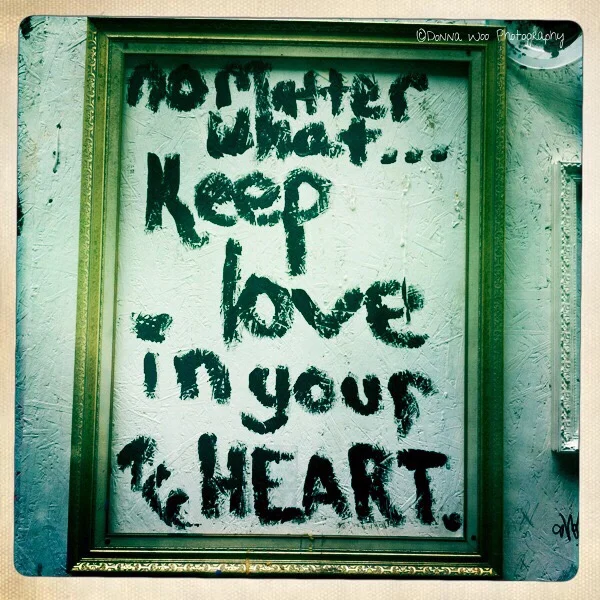 ©Donna Woo Photography
no matter
what...
Keep
love
in your
HEART.